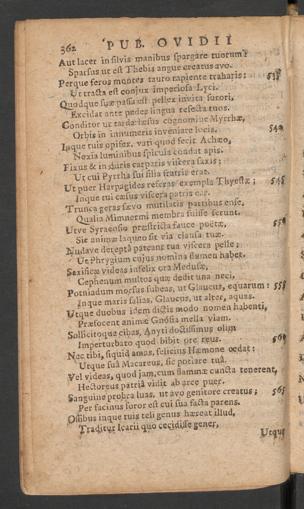 362 PUB. OVIDII
Aut lacer in silvis manibus spargare tuorum?
Sparsus ut est Thebis angue creatus avo.
Perque feros montes tauro rapiente traharis: 535
Ut tracta est conjux imperiosa Lyci.
Quodque suæ passa est pellex invita sorori,
Excidat ante pedes lingua resecta tuos.
Conditor ut tardæ læsus cognomine Myrrhæ,
Orbis in innumeris inveniare locis. 540
Inque tuis opifex, vati quod fecit Achæo,
Noxia luminibus spicula condat apis.
Fixus & in duris carparis viscera saxis;
Ut cui Pyrrha sui filia fratris erat.
Ut puer Harpagides referas exempla Thyestæ; 545
Inque tui cæsus viscera patris eas.
Trunca geras sævo mutilatis partibus ense,
Qualia Mimnermi membra fuisse ferunt.
Utve Syracosio præstricta fauce poetæ, 550
Sic animæ laqueo sit via clausa tuæ.
Nudave derepta pateant tua viscera pelle;
Ut Phrygium cujus nomina flumen habet.
Saxificæ videas infelix ora Medusæ,
Cephenum multos quæ dedit una neci.
Potniadum morsus subeas, ut Glaucus, equarum: 555
Inque maris salias, Glaucus, ut alter, aquas.
Utque duobus idem dictis modo nomen habenti,
Præfocent animæ Gnosia mella viam.
Sollicitoque bibas, Anyti doctissimus olim
Imperturbato quod bibit ore reus. 560
Nec tibi, siquid amas, felicius Hæmone cedat:
Utque sua Macareus, sic potiare tua.
Vel videas, quod jam, cum flammæ cuncta tenerent,
Hectoreus patria vidit ab arce puer.
Sanguine probra luas, ut avo genitore creatus; 565
Per facinus soror est cui sua facta parens.
Ossibus inque tuis teli genus hæreat illud,
Traditur Icarii quo cecidisse gener,
Utque